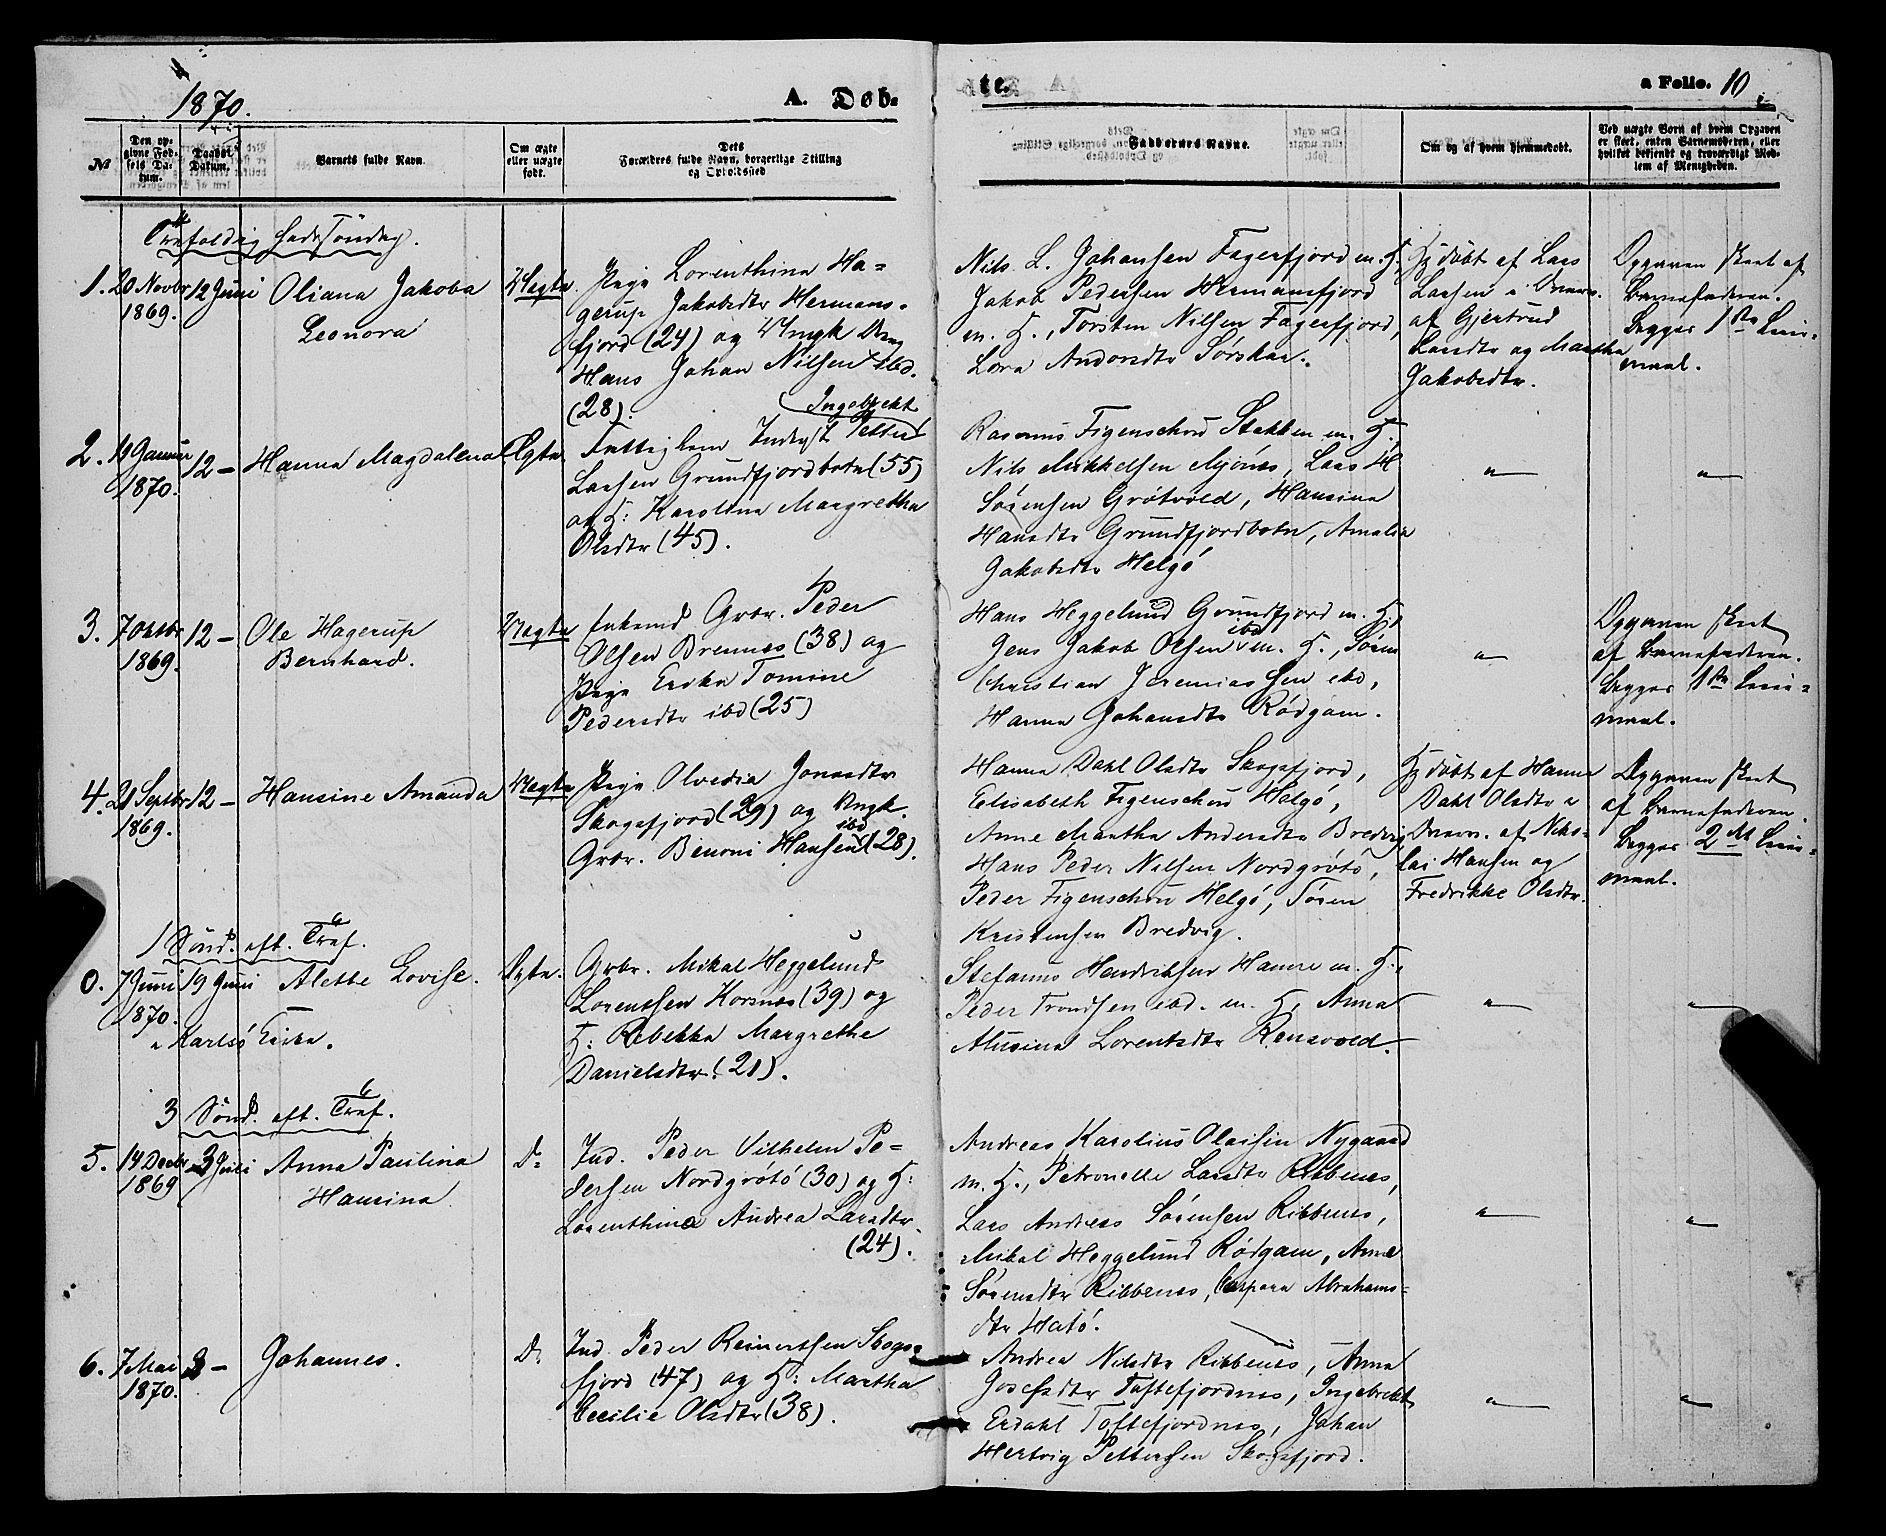 1870.
A. Døb-
te.
a Folio. 10
№
Den op-
givne Fød-
sels Da-
tum.
Daabs-
Datum.
Barnets fulde Navn.
Om ægte
eller uægte
født.
Dets
Forældres fulde Navn, borgerlige Stilling
og Opholdssted
Faddernes Navne.
Om og af hvem hjemmedøbt.
Ved uægte Børn af hvem Opgaven
er skeet, enten Barnemoderen, eller
hvilket bekjendt og troværdigt Med-
lem af Menigheden.
Trefoldighedssöndag.
1. 20 Novbr
1869.
12 Juni
Oliana Jakoba
Leonora
Uægte.
Pige Lorenthina Ha-
gerup Jakobsdtr Hermans-
fjord (24) og Ungk Dreng
Hans Johan Nilsen ibd.
(28).
Nils L. Johansen Fagerfjord m. H.
Jakob Pedersen Hermansfjord
m. H., Torsten Nilsen Fagerfjord,
Lora Andorsdtr Sørskar.
Hjdöbt af Lars
Larsen
af Gjertrud
Larsdtr og Martha
Jakobsdtr.
Opgaven skeet af
Barnefaderen.
Begges 1ste Leier-
maal.
2. 19 Januar
1870.
12 -
Hanna Magdalena
Ægte.
Ingebrekt
Fattiglem Inderst Petter
Larsen Grundfjordbotn (55)
og H: Karolina Margretha
Olsdtr (45).
Rasmus Figenschou Stakken m. H.,
Nils Mikkelsen Mjönes, Lars H
Sørensen Grötvold, Hansina
Hansdtr Grundfjordbotn, Amalia
Jakobsdtr Helgö
"
"
3. 7 Oktbr
1869.
12 -
Ole Hagerup
Bernhard.
Uægte
Enkemd Grbr. Peder
Olsen Brennes (38) og
Pige Erika Tomine
Pedersdtr ibd (25)
Hans Heggelund Grundfjord m. H.,
ibd
Jens Jakob Olsen m. H., Sören
Christian Jeremiassen ibd,
Hanna Johansdtr Rödgam.
"
Opgaven skeet
af Barnefaderen.
Begges 1ste Leier-
maal.
4. 21 Septbr
1869.
12 -
Hansine Amanda
Uægte
Pige Olvedia Jonasdtr
Skogsfjord (29) og Ungk.
ibd
Grbr. Benoni Hansen (28).
Hanna Dahl Olsdtr Skogsfjord,
Elisabeth Figenschou Helgö,
Anne Martha Andersdtr Bredvig,
Hans Peder Nilsen Nordgrötö,
Peder Figenschou Helgö, Sören
Kristensen Bredvig.
Hjdöbt af Hanna
Dahl Olsdtr
af Niko-
lai Hansen og
Fredrikke Olsdtr.
Opgaven skeet
af Barnefaderen.
Begges 2det Leier-
maal.
1 Sönd. eft. Tref.
0. 7 Juni
1870.
19 Juni
Alette Lovise.
Ægte.
Grbr. Mikal Heggelund
Lorentsen Korsnes (39) og
H: Rebekka Margrethe
Danielsdtr (21).
Stefanus Hendriksen Hamre m. H.,
Peder Trondsen ibd. m. H., Anna
Alusina Lorentsdtr Rensvold.
"
"
Karlsö Kirke.
3 Sönd. eft. Tref.
5. 14 Decbr
1869
3 Juli
Anna Paulina
Hansina
D:
Ind. Peder Vilhelm Pe-
dersen Nordgrötö (30) og H:
Lorenthina Andrea Larsdtr
(24).
Andreas Karolius Olaisen Nygaard
m. H., Petronelle Larsdtr Ribbenes,
Lars Andreas Sörensen Ribbenes,
Mikal Heggelund Rödgam, Anne
Sörensdtr Ribbenes, Caspara Abrahams-
dtr Hatö.
"
"
6. 7 Mai
1870.
3 -
Johannes.
D:
Ind. Peder Reinertsen Skogs-
fjord (47) og H: Martha
Cecilie Olsdtr (38).
Andrea Nilsdtr Ribbenes, Anna
Josefsdtr Toftefjordnes, Ingebrekt
Erdahl Toftefjordnes, Johan
Hertvig Pettersen Skogsfjord.
"
"